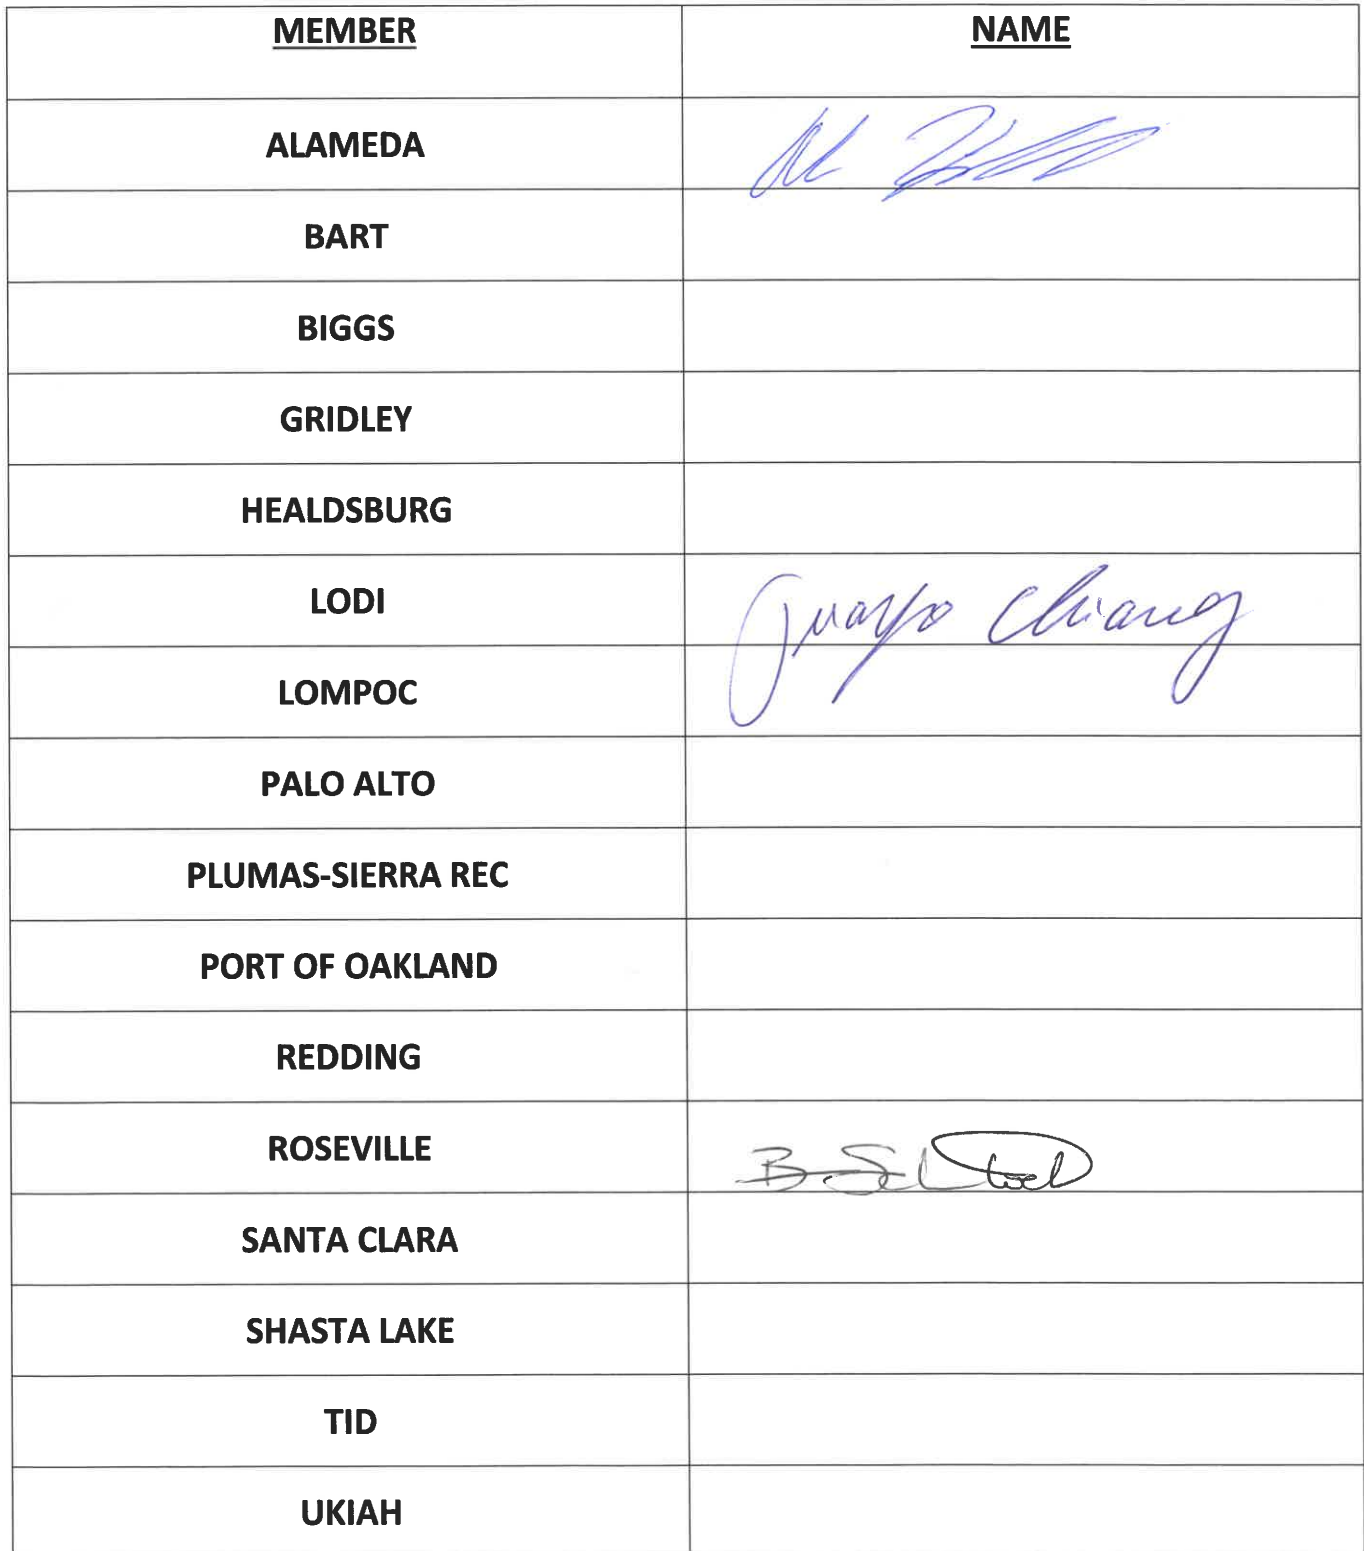 MEMBER NAME
ALAMEDA
BART
BIGGS
GRIDLEY
HEALDSBURG
LODI Chiang
LOMPOC
PALO ALTO
PLUMAS-SIERRA REC
PORT OF OAKLAND
REDDING
ROSEVILLE
SANTA CLARA
SHASTA LAKE
TID
UKIAH